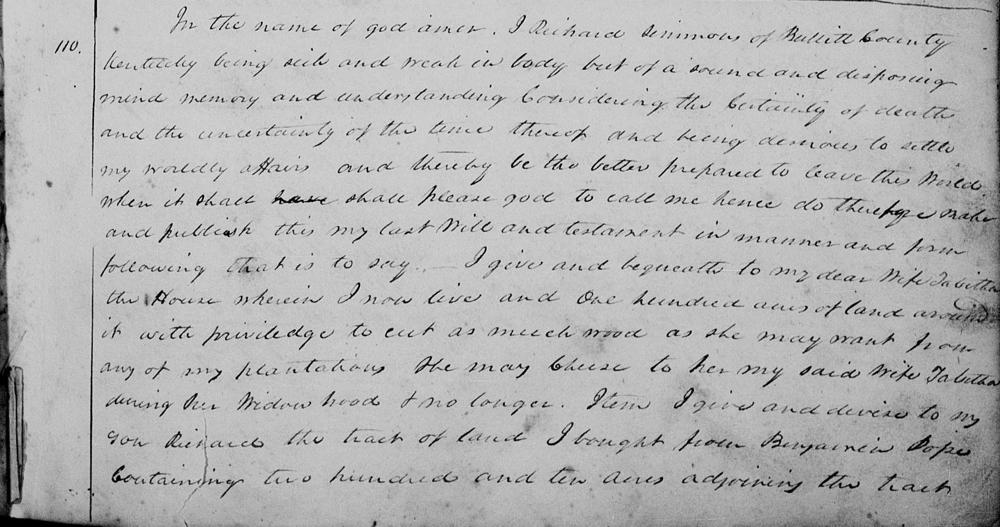 110.
In the name of god amen. I Richard Simmons of Bullitt County
Kentucky being sick and weak in body but of a sound and disposing
mind memory and understanding Considering the Certainty of death
and the uncertainty of the time thereof and being desirous to settle
my worldly affairs and thereby be the better prepared to leave this World
when it shall have shall please god to call me hence do therefore make
and publish this my last Will and testament in manner and form
following that is to say. — I give and bequeath to my dear Wife Tabitha
the House wherein I now live and One hundred acres of land around
it with priviledge to cut as much wood as she may want from
any of my plantations She may Chuse to her my said Wife Tabitha
during her Widow hood & no longer. Item I give and devise to my
Son Richard the tract of land I bought from Benjamin Pope
Containing two hundred and ten acres adjoining the tract